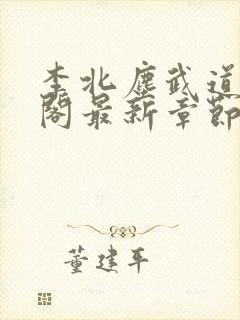 李北塵武道
閣最新章節
董建平